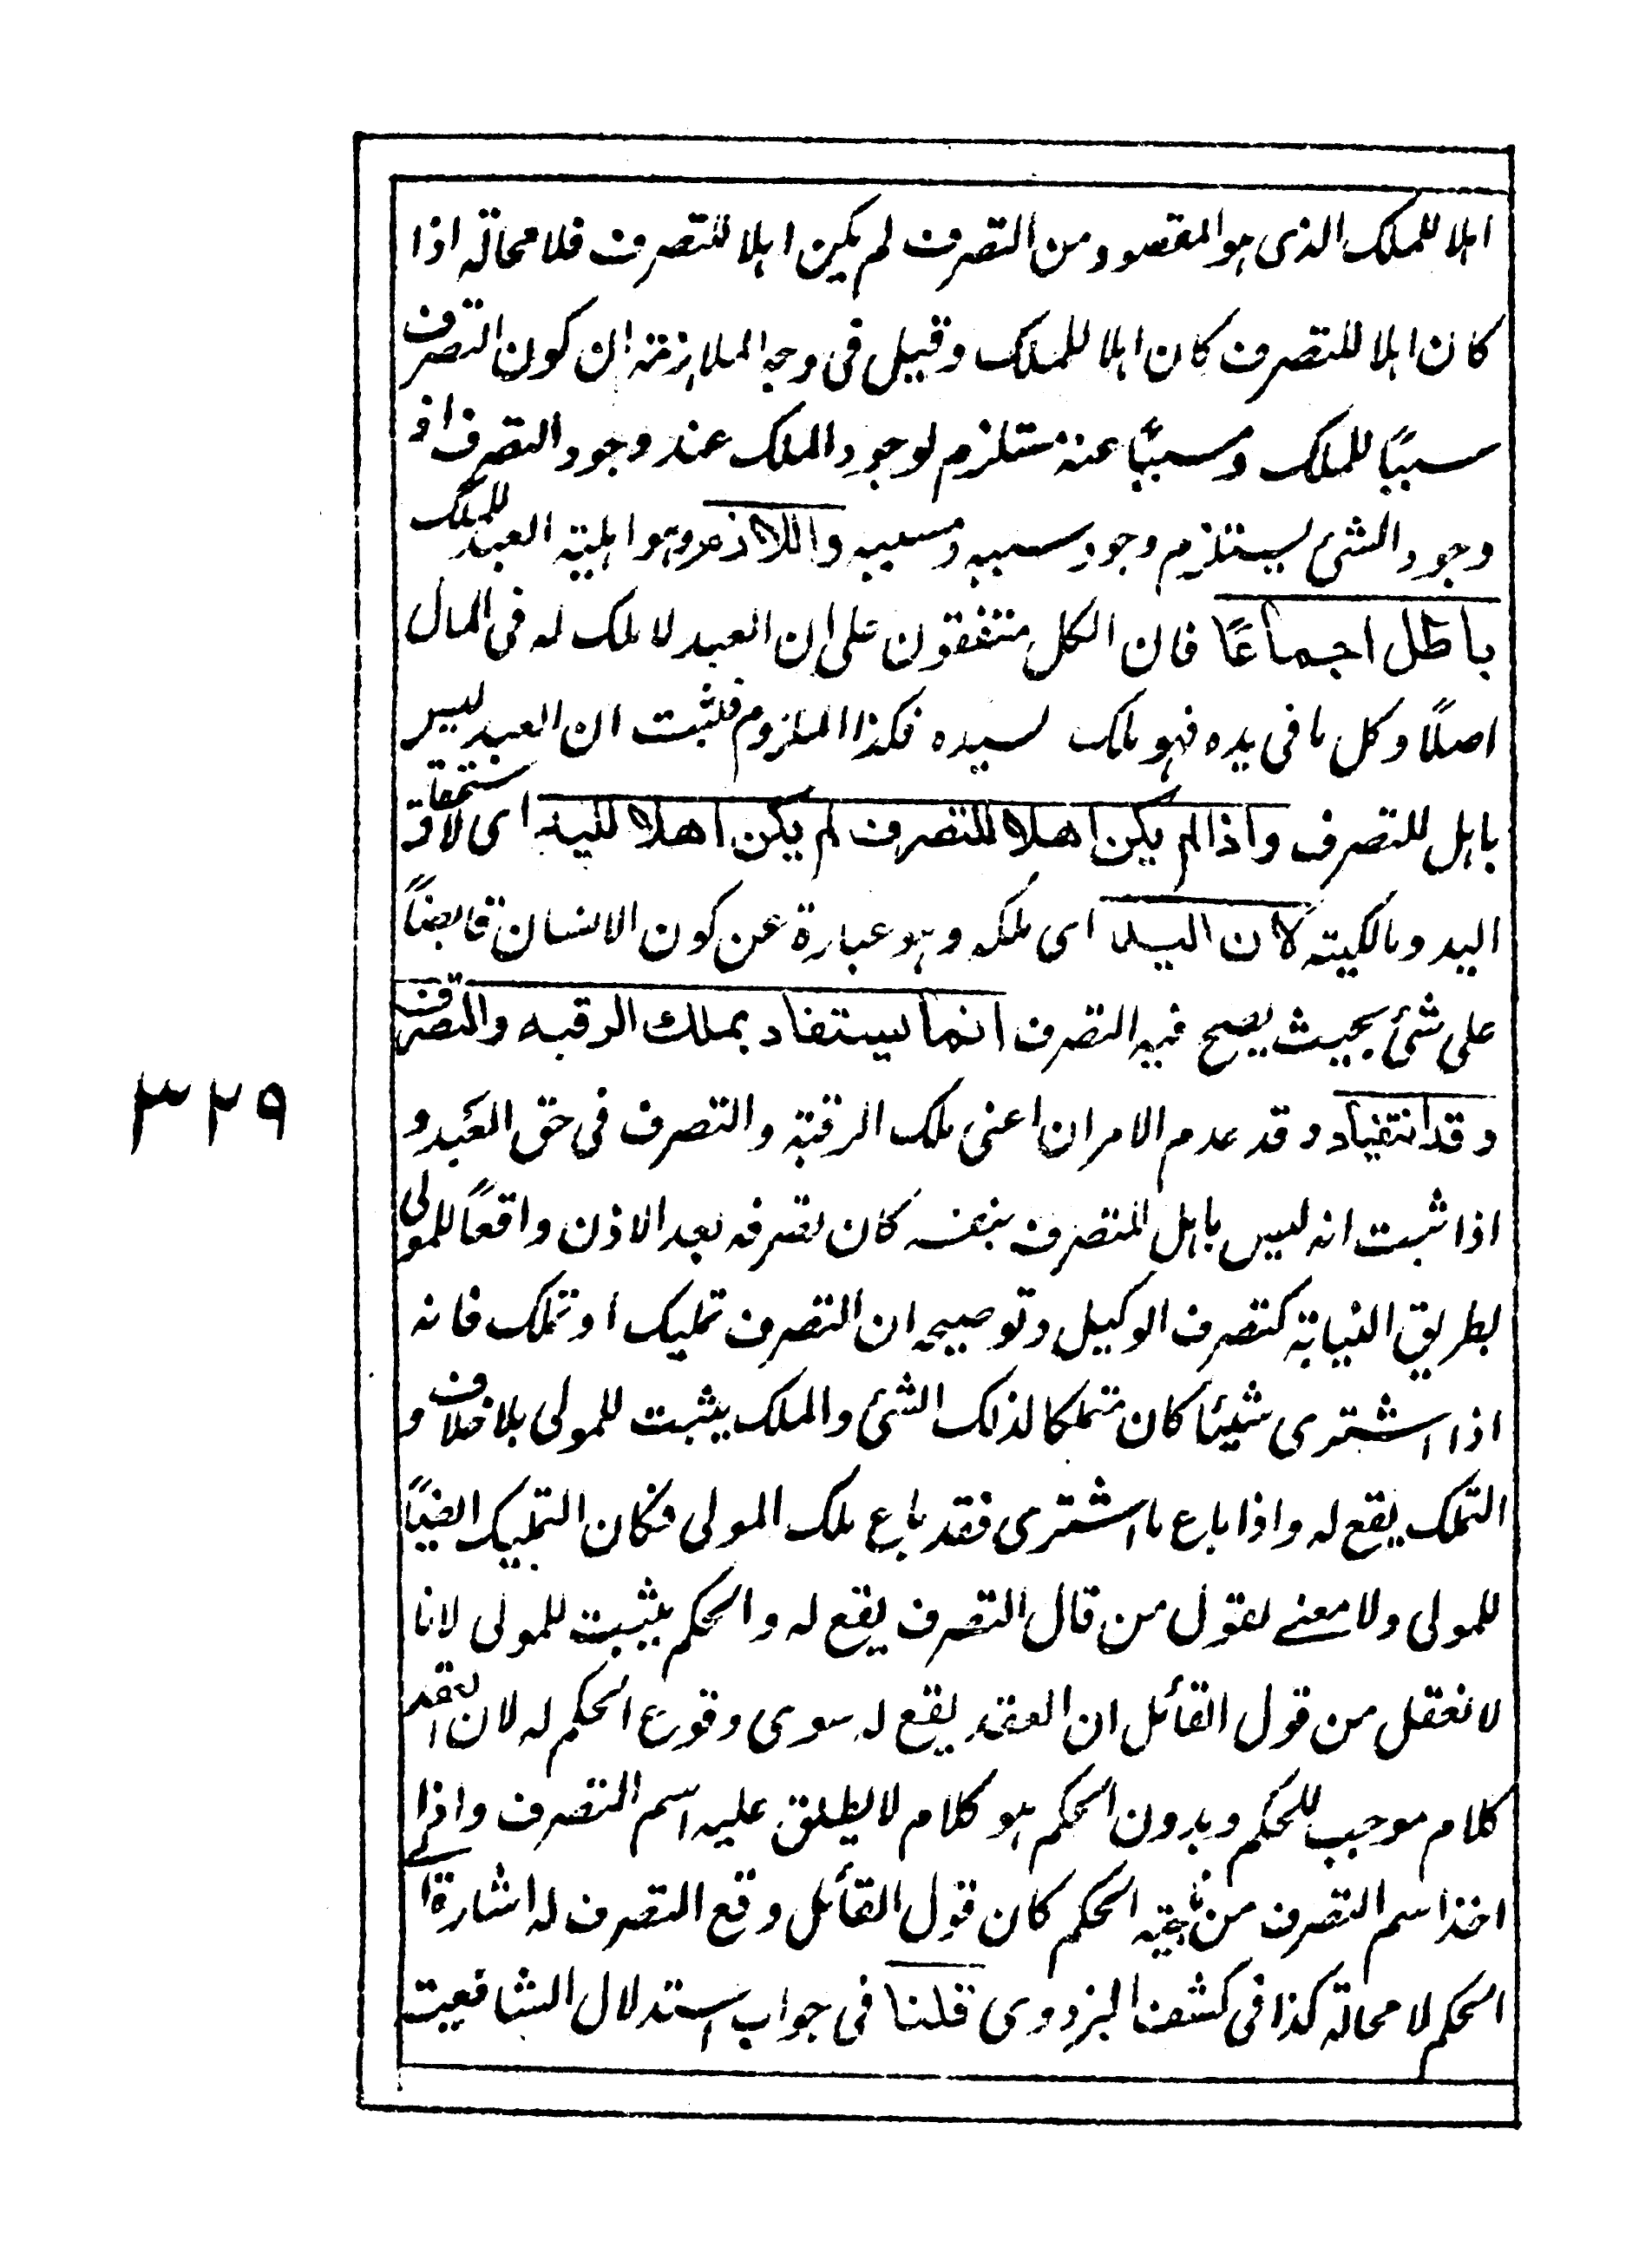 اهلا للملك الذى هو المقصود من التصرف لم يكن اهلا للتصرف فلا محالة اذا
كان اهلا للتصرف كان اهلا للملك وقيل فى وجه الملازمة ان كون التصرف
سببًا للملك ومسببًا عنه مستلزم لوجود الملك عند وجود التصرف اذ
وجود الشئ يستلزم وجود سببه ومسببه واللازم وهو اهلية العبد للملك
باطل اجماعًا فان الكل متفقون على ان العبد لا ملك له فى المال
اصلًا وكل ما فى يده فهو ملك لسيده فكذا الملزوم فثبت ان العبد ليس
باهل للتصرف واذا لم يكن اهلا للتصرف لم يكن اهلا لليد اى لاستحقاق
اليد ومالكيته لان اليد اى ملكه وهو عبارة عن كون الانسان قابضًا
على شئ بحيث يصح فيه التصرف انما يستفاد بملك الرقبه والتصرف
وقد انتفيا وقد عدم الامران اعنى ملك الرقبة والتصرف فى حق العبد و
اذا ثبت انه ليس باهل المتصرف بنفسه كان تصرفه بعد الاذن واقعًا للمولى
بطريق النيابة كتصرف الوكيل وتوضيحه ان التصرف تمليك او تملك فانه
اذا اشترى شيئا كان متملكا لذلك الشئ والملك يثبت للمولى بلا خلاف و
التملك يقع له واذا باع ما اشترى فقد باع ملك المولى فكان التمليك ايضًا
للمولى ولا معنے لقول من قال التصرف يقع له والحكم يثبت للمولى لانا
لا نعقل من قول القائل ان العقد يقع له سوى وقوع الحكم له لان العقد
كلام موجب للحكم وبدون الحكم هو كلام لا يطلق عليه اسم التصرف واذا
اخذ اسم التصرف من الحكم كان قول القائل وقع التصرف له اشارة
الحكم لا محالة كذا فى كشف البزدوى قلنا فى جواب استدلال الشافعية
٣٢٩